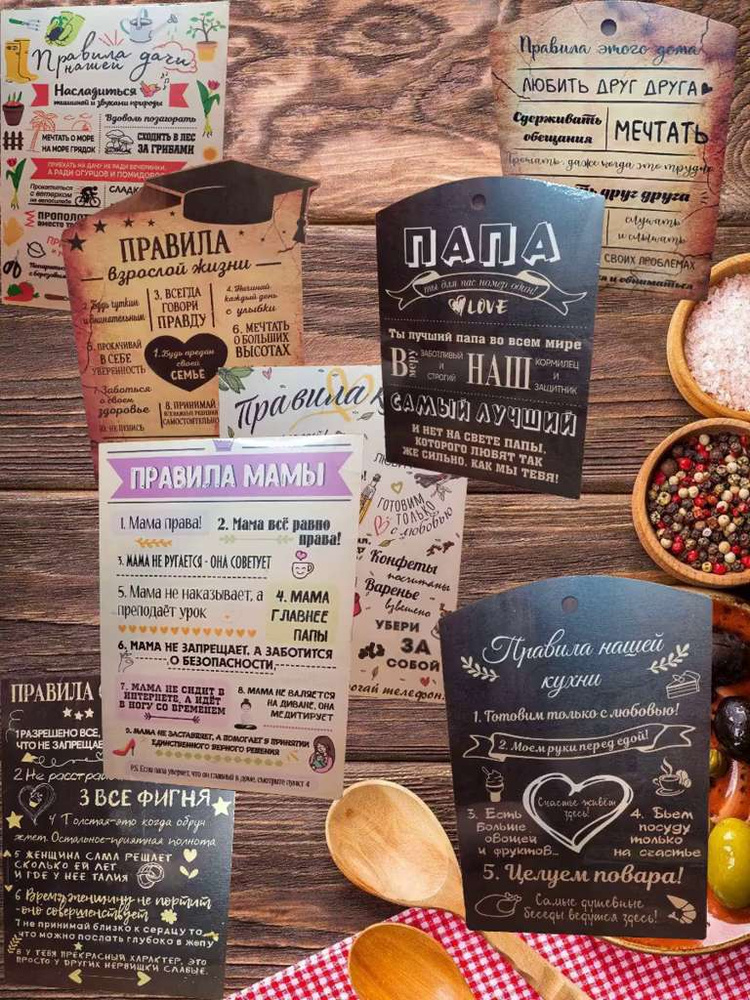 Правила
нашей дачи
Насладиться
тишиной и звуками природы
Вдоволь позагорать
МЕЧТАТЬ О МОРЕ
НА МОРЕ ГРЯДОК
СХОДИТЬ В ЛЕС
ЗА ГРИБАМИ
ПРИЕХАТЬ НА ДАЧУ НЕ РАДИ ВЕЧЕРИНКИ,
А РАДИ ОГУРЦОВ И ПОМИДОРОВ
Прокатиться
с ветерком
на велосипеде
Правила этого дома
ЛЮБИТЬ ДРУГ ДРУГА
Сдерживать
обещания
МЕЧТАТЬ
Прощать, даже когда это трудно
друг друга
слушать
и слышать
СВОИХ ПРОБЛЕМАХ
и обниматься
ПРАВИЛА
взрослой жизни
2. Будь чутким
и внимательным
3. ВСЕГДА
ГОВОРИ
ПРАВДУ
4. Начинай
каждый день
с улыбки
5. ПРОКАЧИВАЙ
В СЕБЕ
УВЕРЕННОСТЬ
1. Будь предан
своей
СЕМЬЕ
6. МЕЧТАТЬ
О БОЛЬШИХ
ВЫСОТАХ
7. Заботься
о своем
здоровье
8. ПРИНИМАЙ
САМОСТОЯТЕЛЬНО
ПАПА
ты для нас номер один!
LOVE
Ты лучший папа во всем мире
В меру
ЗАБОТЛИВЫЙ
И
СТРОГИЙ
НАШ
КОРМИЛЕЦ
И
ЗАЩИТНИК
САМЫЙ ЛУЧШИЙ
И НЕТ НА СВЕТЕ ПАПЫ,
КОТОРОГО ЛЮБЯТ ТАК
ЖЕ СИЛЬНО, КАК МЫ ТЕБЯ!
Правила
ГОТОВИМ
ТОЛЬКО
с любовью
Конфеты
посчитаны
Варенье
взвешено
УБЕРИ
ЗА
СОБОЙ
телефон.
ПРАВИЛА МАМЫ
1. Мама права!
2. Мама всё равно
права!
3. МАМА НЕ РУГАЕТСЯ - ОНА СОВЕТУЕТ
5. Мама не наказывает, а
преподаёт урок
4. МАМА
ГЛАВНЕЕ
ПАПЫ
6. МАМА НЕ ЗАПРЕЩАЕТ, А ЗАБОТИТСЯ
О БЕЗОПАСНОСТИ,
7. МАМА НЕ СИДИТ В
ИНТЕРНЕТЕ, А ИДЁТ
В НОГУ СО ВРЕМЕНЕМ
8. МАМА НЕ ВАЛЯЕТСЯ
НА ДИВАНЕ, ОНА
МЕДИТИРУЕТ
9. МАМА НЕ ЗАСТАВЛЯЕТ, А ПОМОГАЕТ В ПРИНЯТИИ
ЕДИНСТВЕННОГО ВЕРНОГО РЕШЕНИЯ
P.S. Если папа уверяет, что он главный в доме, смотрите пункт 4
Правила нашей
кухни
1. Готовим только с любовью!
2. Моем руки перед едой!
Счастье живёт
здесь!
3. Есть
больше
овощей
и фруктов...
4. Бьем
посуду
только
на счастье
5. Целуем повара!
Самые душевные
беседы ведутся здесь!
ПРАВИЛА
1 РАЗРЕШЕНО ВСЕ,
ЧТО НЕ ЗАПРЕЩАЕ
2 Не расстра
3 ВСЕ ФИГНЯ
4 Толстая-это когда обруч
жмет. Остальное-приятная полнота
5 ЖЕНЩИНА САМА РЕШАЕТ
СКОЛЬКО ЕЙ ЛЕТ
И ГДЕ У НЕЕ ТАЛИЯ
6 Время женщину не портит
-оно совершенствует
7 не принимай близко к сердцу то,
что можно послать глубоко в жопу
8 У ТЕБЯ ПРЕКРАСНЫЙ ХАРАКТЕР, ЭТО
ПРОСТО У ДРУГИХ НЕРВИШКИ СЛАБЫЕ.